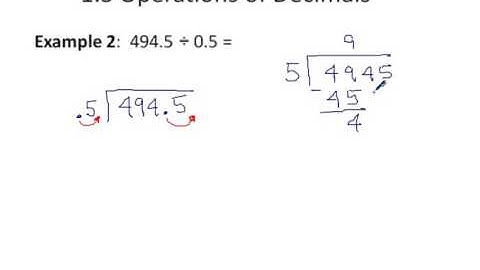 1.3 Operations of Decimals
Example 2: 494.5 ÷ 0.5 =
.5 494.5
9
5 4945
-45
4